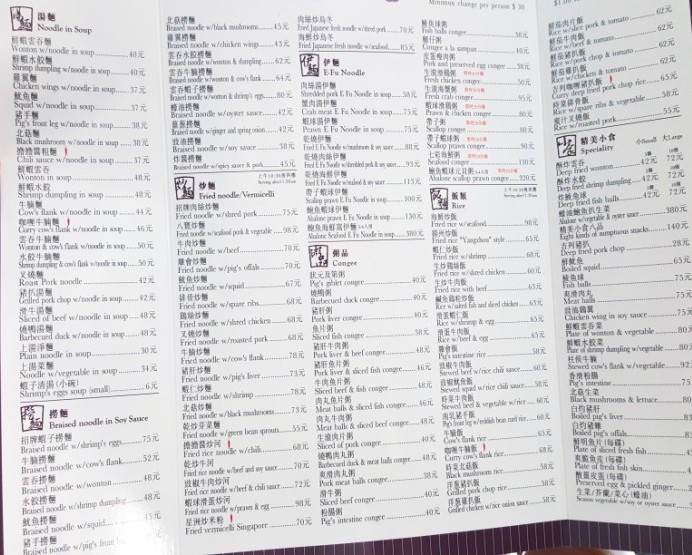 湯麵
Noodle in Soup
鮮蝦雲吞麵
Wonton w/noodle in soup 40元
鮮蝦水餃麵
Shrimp dumpling w/noodle in soup 40元
雞翼麵
Chicken wings w/noodle in soup 37元
魷魚麵
Squid w/noodle in soup 37元
豬手麵
Pig's front leg w/noodle in soup 38元
北菇麵
Black mushroom w/noodle in soup 38元
擔擔醬麵
Chili sauce w/noodle in soup 37元
鮮蝦雲吞
Wonton in soup 48元
鮮蝦水餃
Shrimp dumpling in soup 48元
牛腩麵
Cow's flank w/noodle in soup 44元
咖喱牛腩麵
Curry cow's flank w/noodle in soup 46元
雲吞牛腩麵
Wonton & cow's flank w/noodle in soup 50元
水餃牛腩麵
Shrimp dumpling & cow's flank w/noodle in soup 50元
叉燒麵
Roast Pork noodle 42元
豬扒湯麵
Grilled pork chop w/noodle in soup 42元
滑牛湯麵
Sliced of beef w/noodle in soup 48元
燒鴨湯麵
Barbecued duck w/noodle in soup 48元
上湯淨麵
Plain noodle in soup 30元
上湯菜麵
Noodle w/vegetable in soup 34元
蝦子清湯(小碗)
Shrimp's eggs soup (small) 6元
撈麵
Braised noodle in Soy Sauce
招牌蝦子撈麵
Braised noodle w/shrimp's eggs 75元
牛腩撈麵
Braised noodle w/cow's flank 52元
雲吞撈麵
Braised noodle w/wonton 48元
水餃撈麵
Braised noodle w/shrimp dumpling 48元
魷魚撈麵
Braised noodle w/squid 45元
豬手撈麵
Braised noodle w/pig's front leg
北菇撈麵
Braised noodle w/black mushrooms 45元
雞翼撈麵
Braised noodle w/chicken wings 43元
雲吞水餃撈麵
Braised noodle w/wonton & dumpling 62元
雲吞牛腩撈麵
Braised noodle w/wonton & cow's flank 64元
雲吞蝦子撈麵
Braised noodle w/wonton & shrimp's eggs 80元
蠔油撈麵
Braised noodle w/oyster sauce 42元
薑葱撈麵
Braised noodle w/ginger and spring onion 42元
豉油撈麵
Braised noodle w/soy sauce 38元
炸醬撈麵
Braised noodle w/spicy sauce & pork 45元
炒麵
Fried noodle/Vermicelli
招牌肉絲炒麵
Fried noodle w/shred pork 75元
八寶炒麵
Fried noodle w/seafood,pork & vegetable 98元
牛肉炒麵
Fried noodle w/beef 70元
雜會炒麵
Fried noodle w/pig's offals 70元
魷魚炒麵
Fried noodle w/squid 67元
排骨炒麵
Fried noodle w/spare ribs 68元
雞絲炒麵
Fried noodle w/shred chicken 68元
叉燒炒麵
Fried noodle w/roasted pork 68元
牛腩炒麵
Fried noodle w/cow's flank 78元
豬肝炒麵
Fried noodle w/pig's liver 73元
蝦仁炒麵
Fried noodle w/shrimp 78元
北菇炒麵
Fried noodle w/black mushrooms 73元
乾炒芽菜麵
Fried noodle w/green bean sprouts 55元
擔擔醬炒河
Fried rice noodle w/chili 68元
乾炒牛河
Fried rice noodle w/beef and soy sauce 70元
豉椒牛肉炒河
Fried rice noodle w/beef & chili sauce 72元
蝦球滑蛋炒河
Fried rice noodle w/prawn & egg 98元
星洲炒米粉
Fried vermicelli Singapore 70元
肉絲炒烏冬
Fried Japanese fresh noodle w/shred pork 70元
海鮮炒烏冬
Fried Japanese fresh noodle w/seafood 85元
伊麵
E-Fu Noodle
肉絲湯伊麵
Shredded pork E Fu Noodle in soup 58元
蟹肉湯伊麵
Crab meat E Fu Noodle in soup 75元
蝦球湯伊麵
Prawn E Fu Noodle in soup 75元
乾燒伊麵
Fried E Fu Noodle w/mushroom & soy sauce 88元
乾燒肉絲伊麵
Fried E Fu Noodle w/shredded pork & soy sauce 93元
乾燒海鮮伊麵
Fried E Fu Noodle w/seafood & soy sauce 115元
帶子蝦球伊麵
Fried E Fu Noodle w/scallop & prawn 130元
鮑魚蝦球伊麵
Abalone prawn E Fu Noodle in soup 150元
鮑魚海鮮窩伊麵
Abalone Seafood E Fu Noodle in soup 380元
粥品
Congee
狀元及第粥
Pig's giblet congee 40元
燒鴨粥
Barbecued duck congee 40元
豬肝粥
Pork liver congee 40元
魚片粥
Sliced fish congee 38元
豬肝牛肉粥
Pork liver & beef congee 48元
豬肝魚片粥
Pork liver & sliced fish congee 46元
牛肉魚片粥
Sliced beef & fish congee 48元
肉丸魚片粥
Meat balls & sliced fish congee 48元
肉丸牛肉粥
Meat balls & sliced beef congee 48元
生滾肉片粥
Sliced of pork congee 40元
燒鴨肉丸粥
Barbecued duck & meat balls congee 48元
爽滑肉丸粥
Pork meat balls congee 38元
滑牛粥
Sliced beef congee 40元
粉腸粥
Pig's intestine congee 40元
Minimum charge per person $ 30
鯪魚球粥
Fish balls congee 38元
艇仔粥
Congee a la sampan 40元
皮蛋瘦肉粥
Pork and preserved egg congee 38元
生滾滑雞粥
Fresh chicken congee 50元
生滾海蟹粥
Fresh crab congee 95元
蝦球滑雞粥
Prawn & chicken congee 80元
帶子粥
Scallop congee 80元
帶子蝦球粥
Scallop prawn congee 90元
七彩海鮮粥
Seafood congee 100元
鮑魚蝦球元貝粥
Abalone scallop prawn congee 320元
飯麵
Rice
海鮮炒飯
Fried rice w/seafood 90元
揚州炒飯
Fried rice "Yangzhou" style 65元
蝦仁炒飯
Fried rice w/shrimp 68元
生炒雞絲飯
Fried rice w/shred chicken 60元
生炒牛肉飯
Fried rice with beef 63元
鹹魚雞粒炒飯
Rice w/salted fish and shred chicken 65元
滑蛋蝦仁飯
Rice w/shrimp & egg 65元
滑蛋牛肉飯
Rice w/beef & egg 65元
雜會飯
Pig's intestine rice 58元
豉椒牛肉飯
Stewed beef w/rice & chili sauce 60元
豉椒魷魚飯
Stewed squid w/rice chili sauce 58元
時菜牛肉飯
Stewed beef & vegetable w/rice 60元
南乳豬手飯
Pig's front leg w/reddish bean curd rice 60元
牛腩飯
Cow's flank rice 63元
咖喱牛腩飯
Curry cow's flank rice 68元
時菜北菇飯
Black mushroom rice 58元
洋葱豬扒飯
Grilled pork chop rice 58元
洋葱雞扒飯
Grilled chicken w/rice onion sauce 58元
鮮茄肉片飯
Rice w/slice pork & tomato 62元
鮮茄牛肉飯
Rice w/beef & tomato 62元
鮮茄豬扒飯
Rice w/pork chop & tomato 62元
鮮茄雞扒飯
Rice w/chicken & tomato 62元
吉列咖喱豬扒飯
Curry deep fried pork chop rice 65元
時菜排骨飯
Rice w/spare ribs & vegetable 58元
蜜汁叉燒飯
Rice w/roasted pork 55元
精美小食
Speciality
小Small 大Large
酥炸雲吞
Deep fried wonton 42元 72元
酥炸水餃
Deep fried shrimp dumpling 42元 72元
炸鯪魚球
Deep fried fish balls 42元 72元
蠔油鮑魚扒生菜
Abalone w/vegetable & oyster sauce 380元
精美小食八品
Eight kinds of sumptuous snacks 140元
吉列豬扒
Deep fried pork chop 28元
鮮魷魚
Boiled squid 65元
鯪魚球
Fish balls 75元
爽滑肉丸
Meat balls 75元
豉油雞翼
Chicken wing in soy sauce 75元
鮮蝦雲吞菜
Plate of wonton & vegetable 80元
鮮蝦水餃菜
Plate of shrimp dumpling w/vegetable 80元
柱侯牛腩
Stewed cow's flank w/vegetable 92元
香滑粉腸
Pig's intestine 75元
北菇生菜
Black mushrooms & lettuce 80元
白灼豬肝
Boiled pig's liver 83元
白灼豬雜
Boiled pig's offals 83元
鮮明魚片(每碟)
Plate of sliced fresh fish 45元
爽脆魚皮(每碟)
Plate of fresh fish skin
酸薑皮蛋(每碟)
Preserved egg & pickled ginger
生菜/芥蘭/菜心(蠔油)
Season vegetable w/soy or oyster sauce